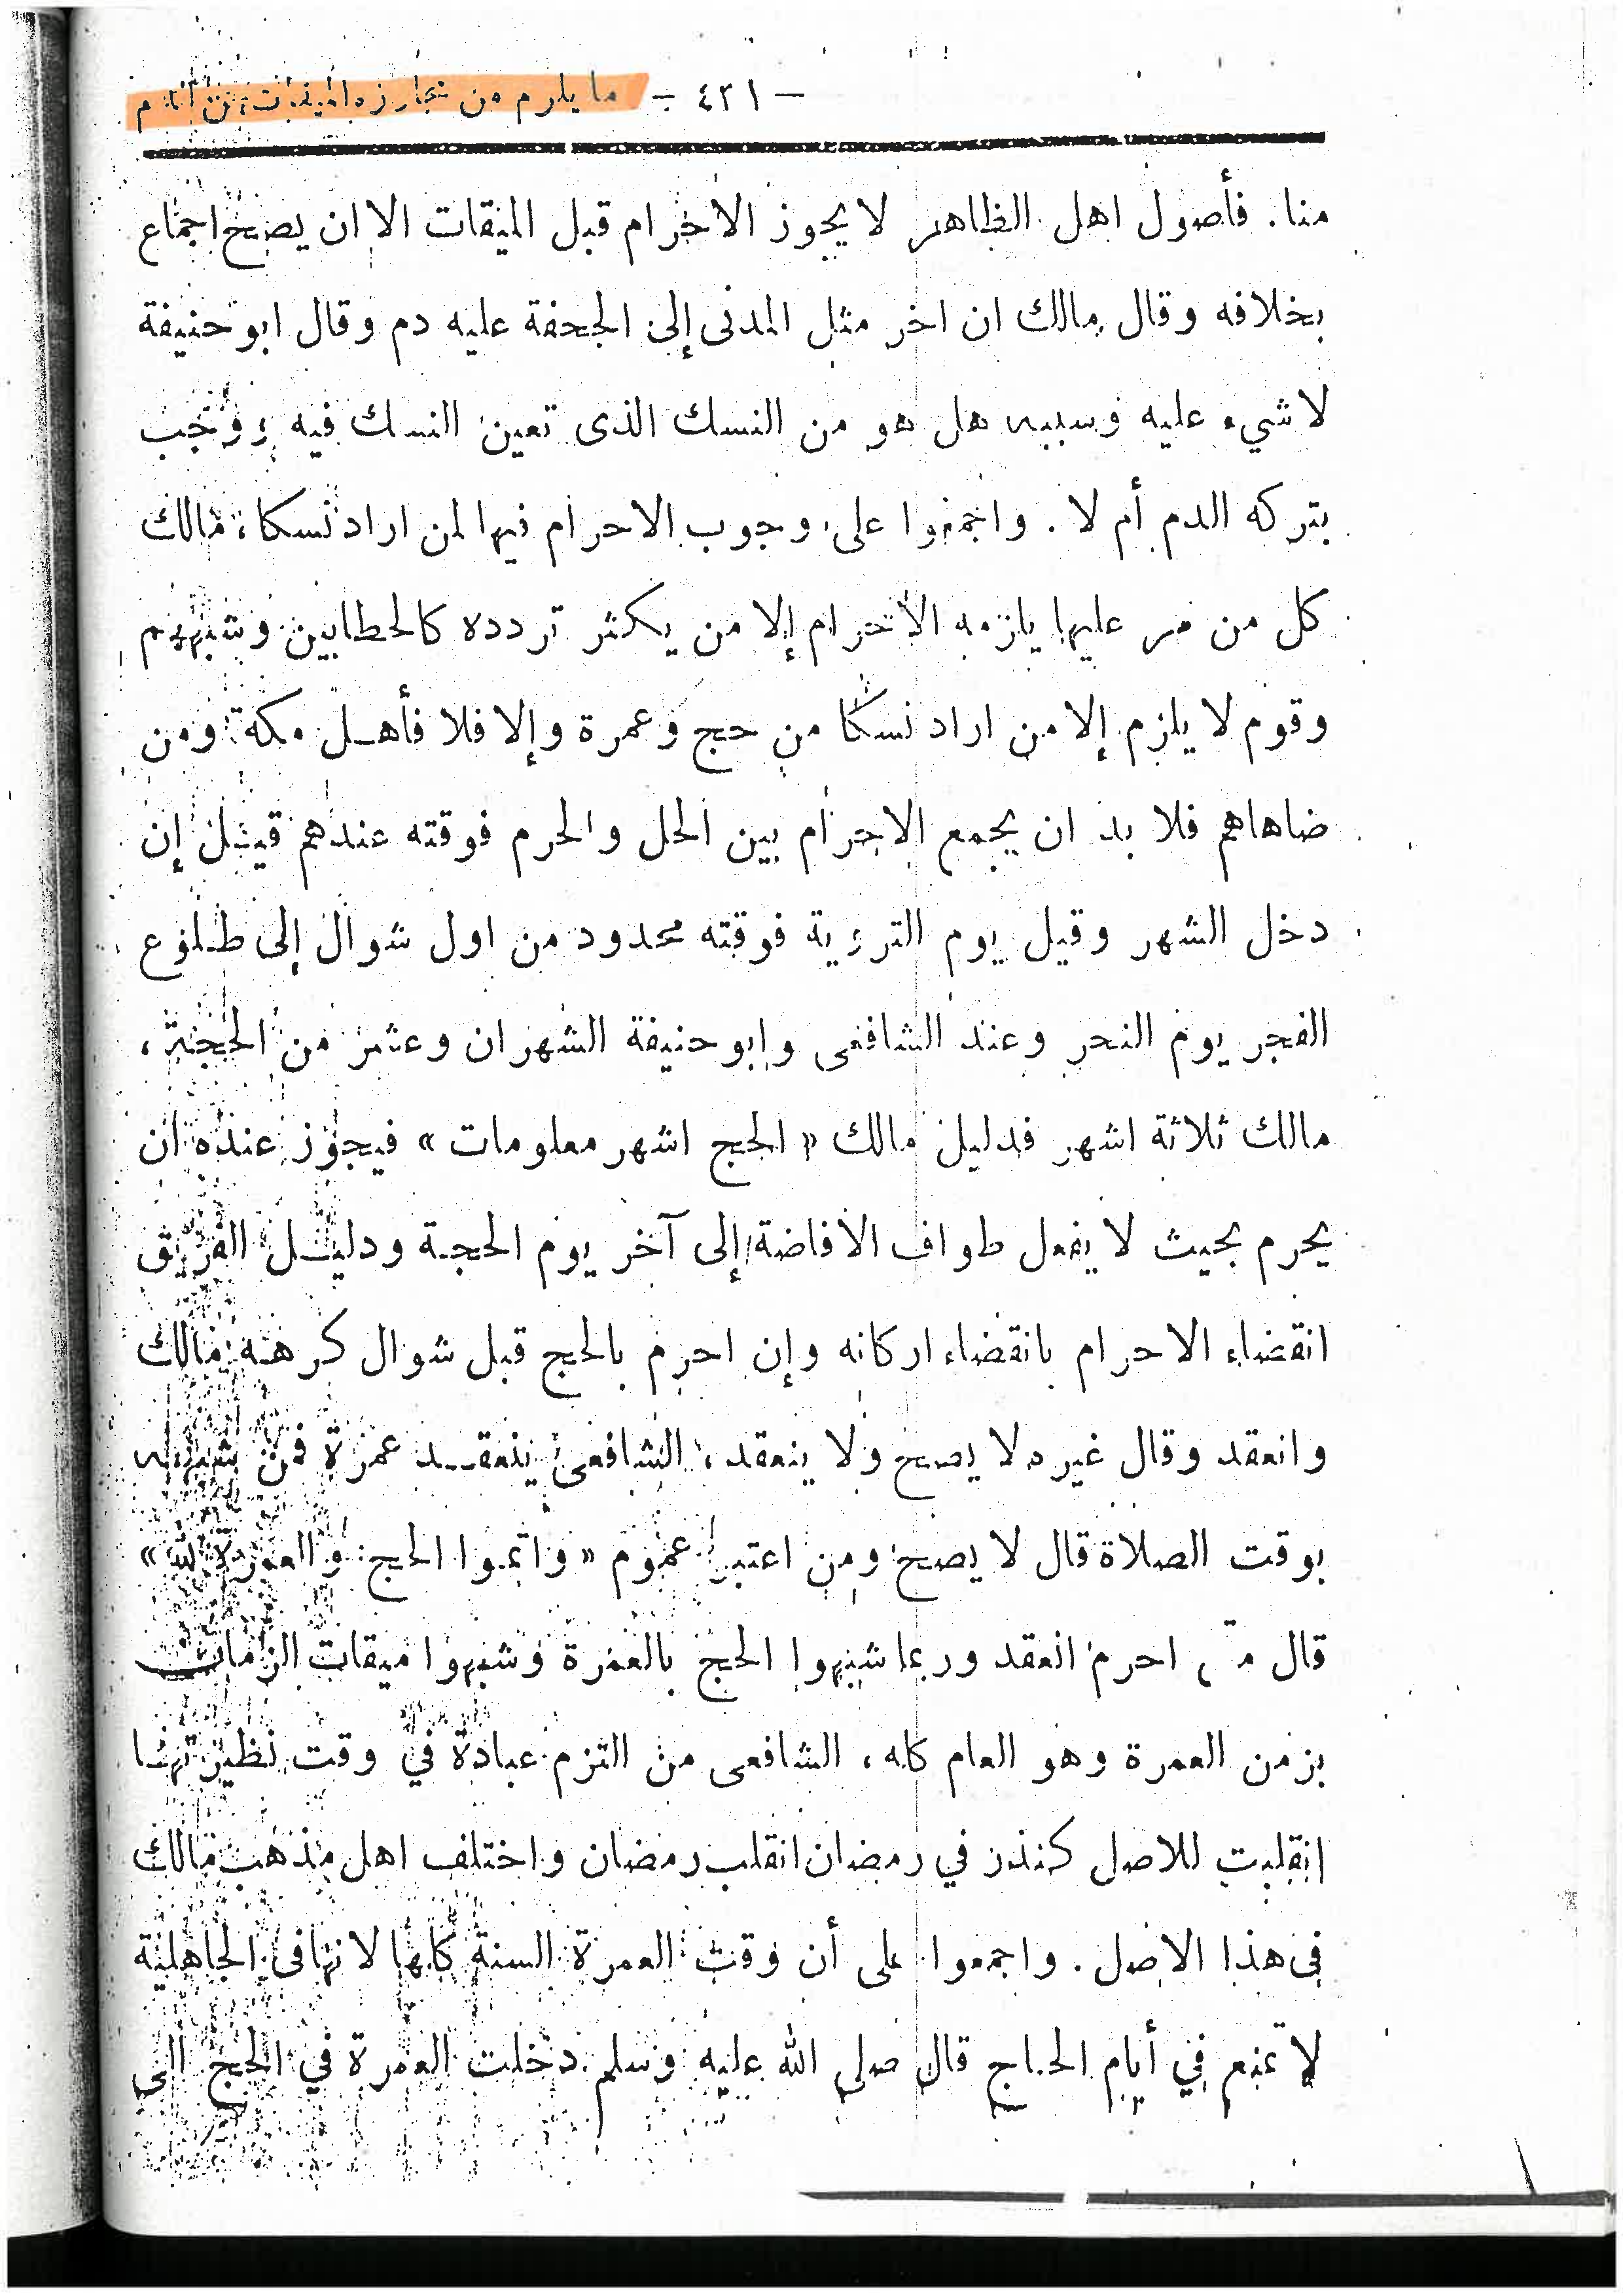 — ٤٢١ — ما يلزم من تجاوزه الميقات من الدم
منا. فأصول اهل الظاهر لا يجوز الاحرام قبل الميقات الا ان يصح اجماع
بخلافه وقال مالك ان اخر مثل المدنى إلى الجحفة عليه دم وقال ابو حنيفة
لا شيء عليه وسببه هل هو من النسك الذى تعين النسك فيه ووجب
بتركه الدم أم لا. واجمعوا على وجوب الاحرام فيها لمن اراد نسكا، مالك
كل من مر عليها يلزمه الاحرام إلا من يكثر تردده كالحطابين وشبههم
وقوم لا يلزم إلا من اراد نسكا من حج وعمرة وإلا فلا فأهل مكة ومن
ضاهاهم فلا بد ان يجمع الاحرام بين الحل والحرم فوقته عندهم قيل إن
دخل الشهر وقيل يوم التروية فوقته محدود من اول شوال إلى طلوع
الفجر يوم النحر وعند الشافعى وابو حنيفة الشهران وعشر من الحجة،
مالك ثلاثة اشهر فدليل مالك «الحج اشهر معلومات» فيجوز عنده ان
يحرم بحيث لا يفعل طواف الافاضة إلى آخر يوم الحجة ودليل الفريق
انقضاء الاحرام بانقضاء اركانه وإن احرم بالحج قبل شوال كرهه مالك
وانعقد وقال غيره لا يصح ولا ينعقد، الشافعى ينعقد عمرة فمن شبهه
بوقت الصلاة قال لا يصح ومن اعتبر عموم «واتموا الحج والعمرة لله»
قال متى احرم انعقد وربما شبهوا الحج بالعمرة وشبهوا ميقات الزمان
بزمن العمرة وهو العام كله، الشافعى من التزم عبادة في وقت نظيرتها
انقلبت للاصل كنذر في رمضان انقلب رمضان واختلف اهل مذهب مالك
فى هذا الاصل. واجمعوا على أن وقت العمرة السنة كلها لانها فى الجاهلية
لا تمنع في أيام الحاج قال صلى الله عليه وسلم دخلت العمرة في الحج الى